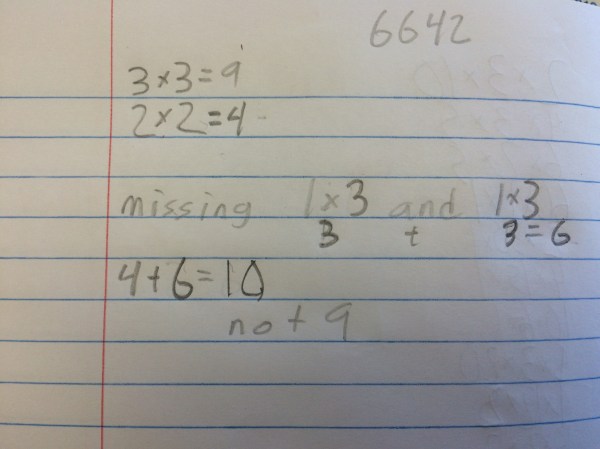 6642
3×3=9
2×2=4
missing 1×3 and 1×3
3 + 3=6
4+6=10
not 9